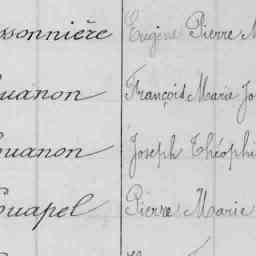 ssonnière Eugène Pierre M
ouanon François Marie Jo
ouanon Joseph Théophi
ouapel Pierre Marie